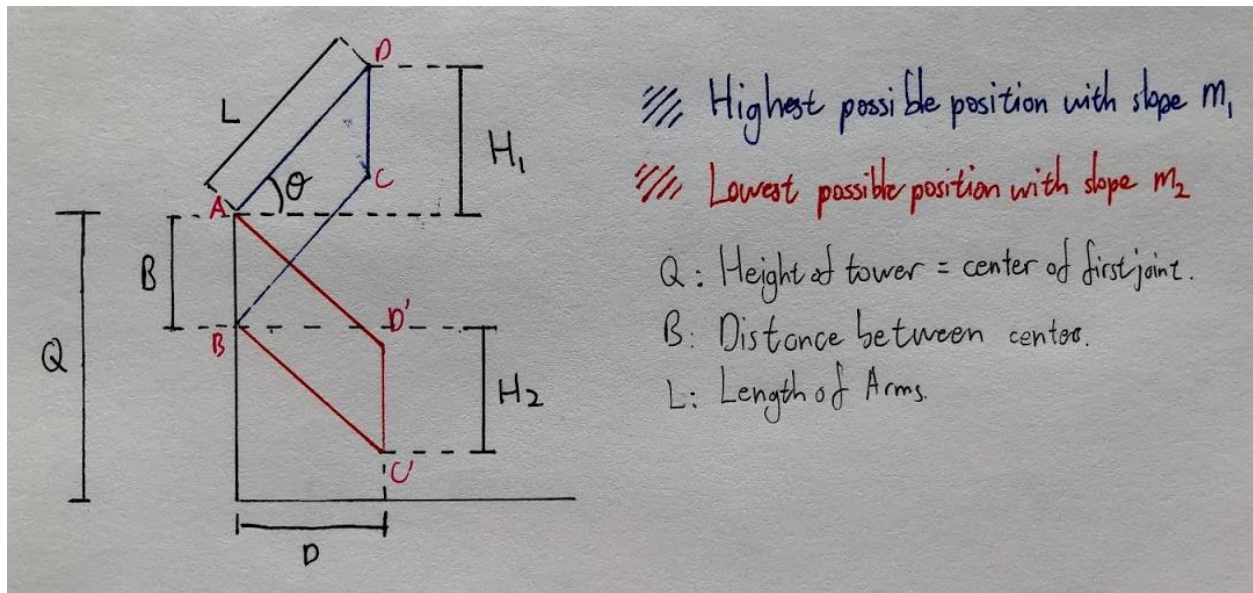 D
L
H₁
θ
C
A
B
B
D'
Q
H₂
C'
D
Highest possible position with slope m₁
Lowest possible position with slope m₂
Q: Height of tower = center of first joint.
B: Distance between center.
L: Length of Arms.